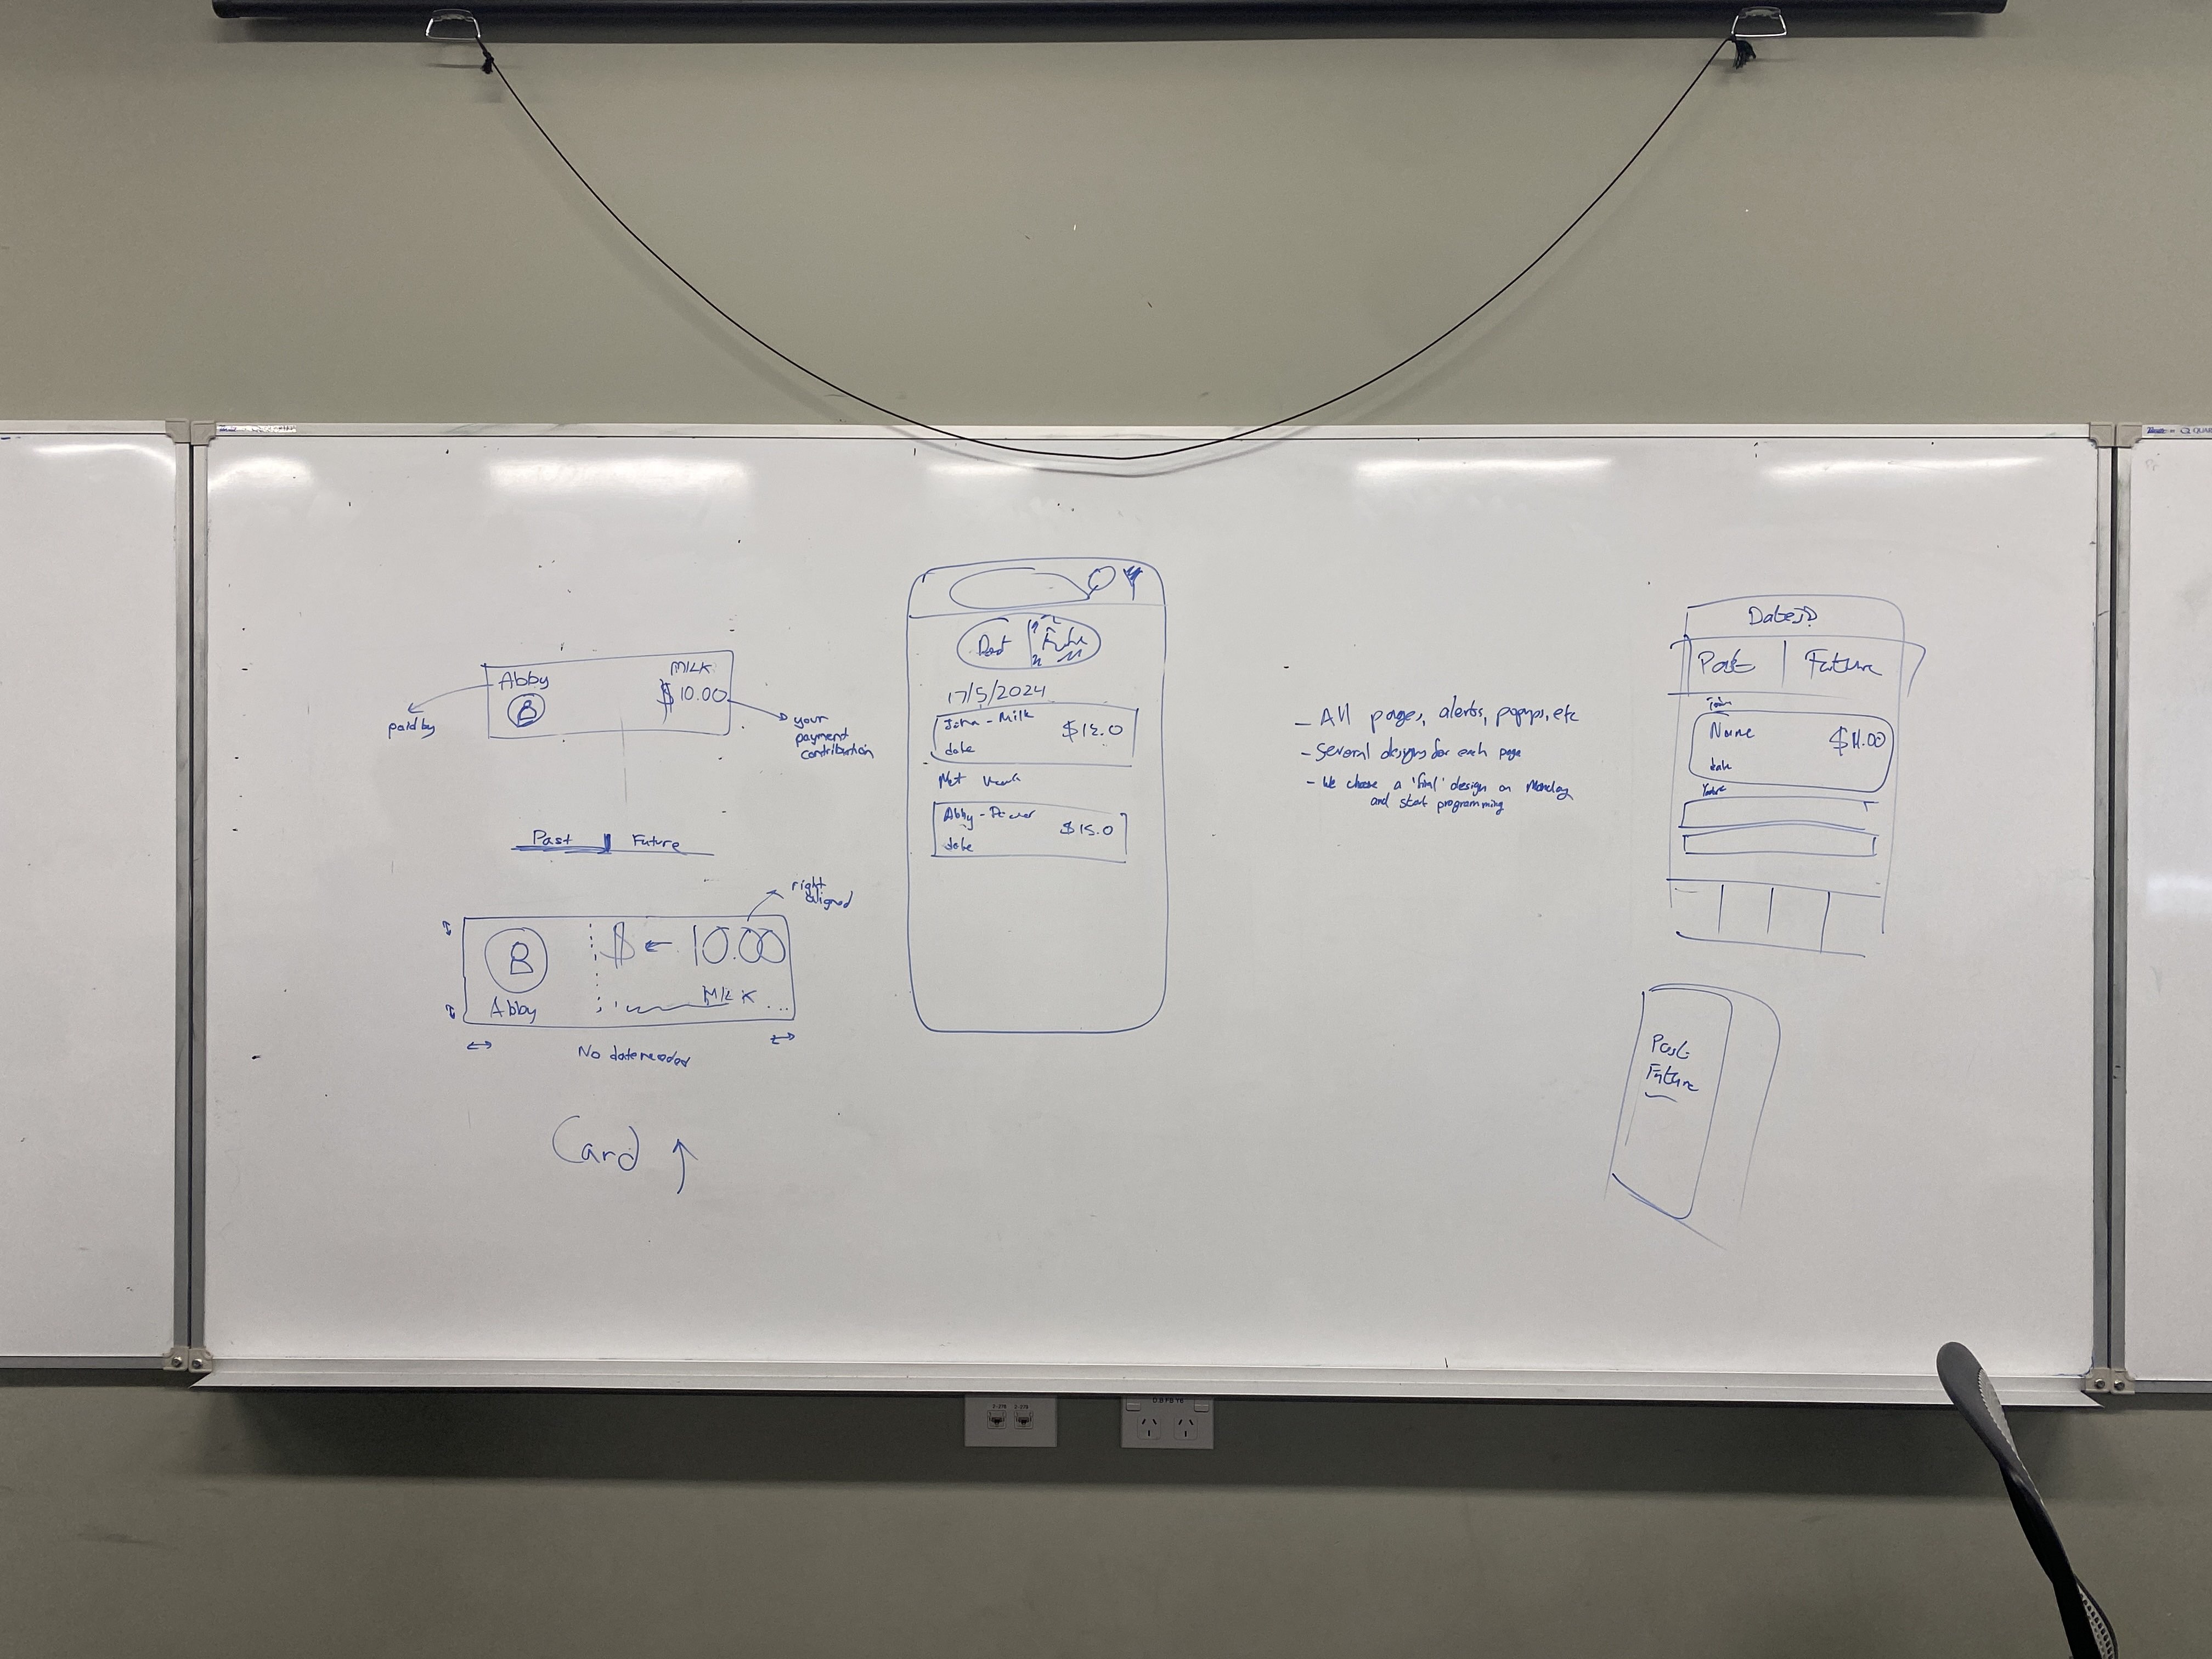 Abby
MILK
$10.00
paid by
your
payment
contribution
Past
Future
right
aligned
$ ← 10.00
MILK ...
Abby
No date needed
Card ↑
Past
Future
17/5/2024
John - Milk
$12.0
date
Abby - Power
$15.0
date
- All pages, alerts, popups, etc
- Several designs for each page
- We choose a 'final' design on Monday
and start programming
Dates?
Past
Future
Name
$11.00
date
Past
Future